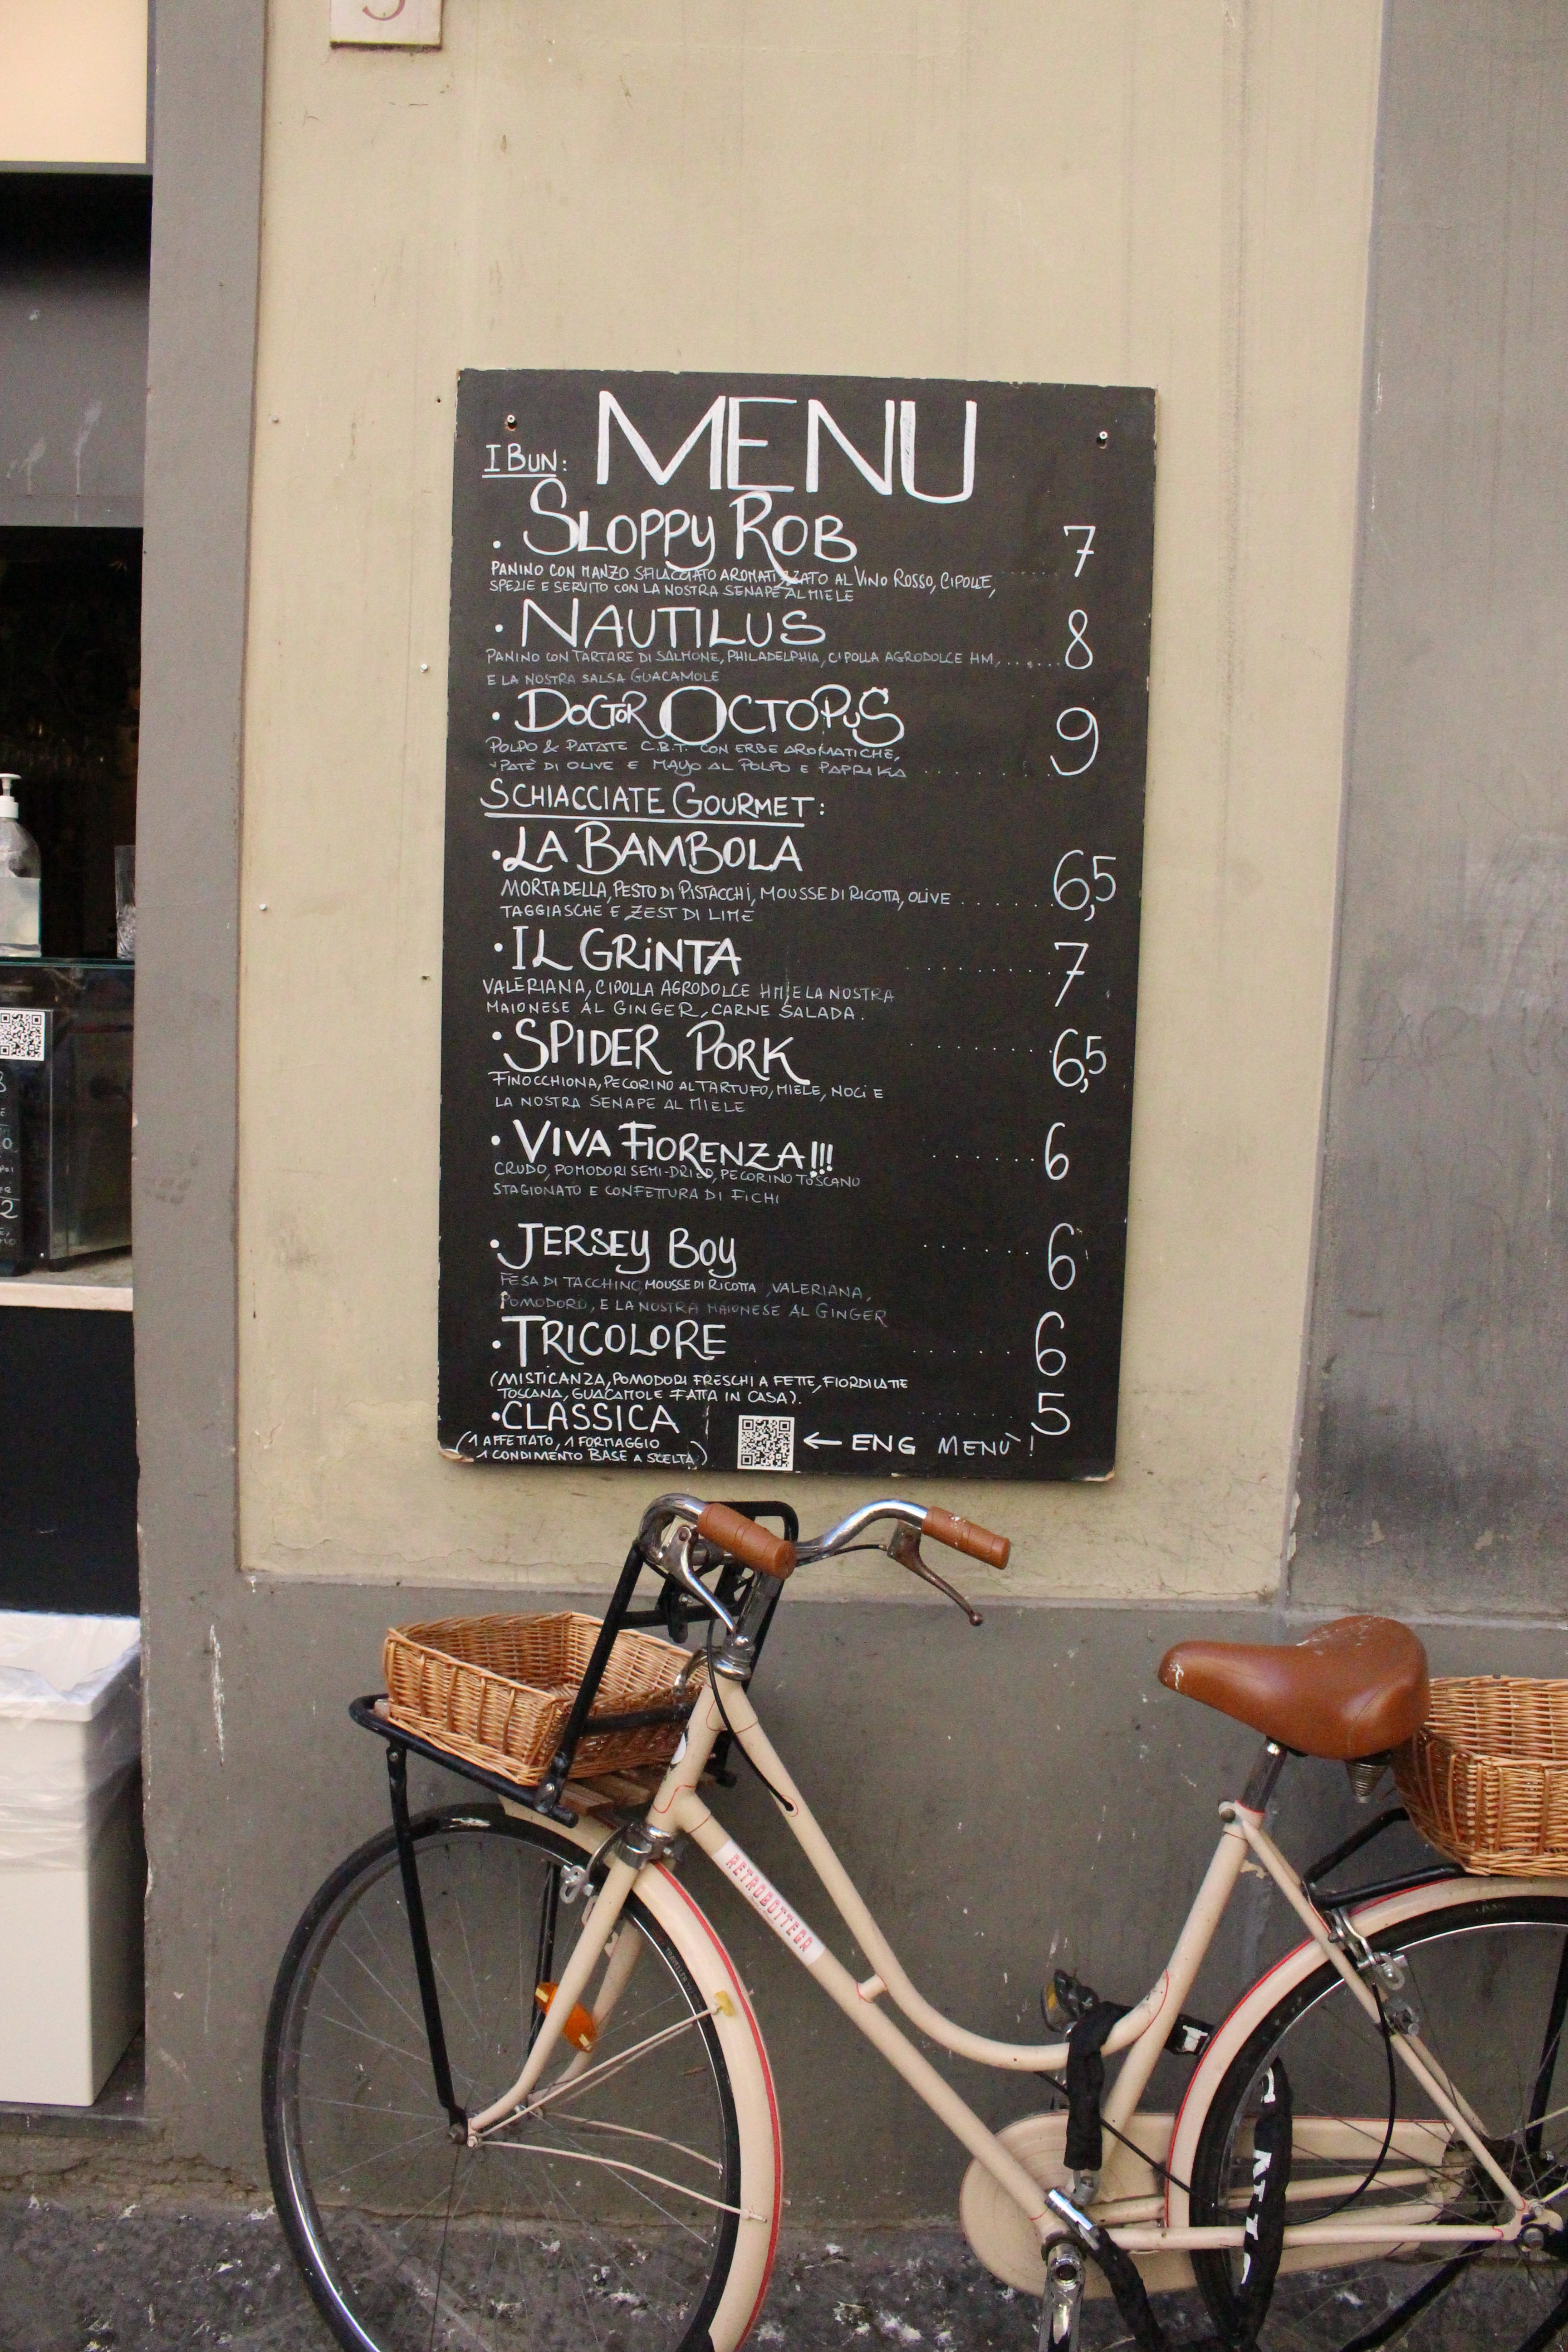 MENU
I BUN:
• SLOPPY ROB 7
PANINO CON MANZO SFILACCIATO AROMATIZZATO AL VINO ROSSO, CIPOLLE,
SPEZIE E SERVITO CON LA NOSTRA SENAPE AL MIELE
• NAUTILUS 8
PANINO CON TARTARE DI SALMONE, PHILADELPHIA, CIPOLLA AGRODOLCE HM,
E LA NOSTRA SALSA GUACAMOLE
• DOCTOR OCTOPUS 9
POLPO & PATATE C.B.T. CON ERBE AROMATICHE,
PATÈ DI OLIVE E MAYO AL POLPO E PAPRIKA
SCHIACCIATE GOURMET:
• LA BAMBOLA 6,5
MORTADELLA, PESTO DI PISTACCHI, MOUSSE DI RICOTTA, OLIVE
TAGGIASCHE E ZEST DI LIME
• IL GRINTA 7
VALERIANA, CIPOLLA AGRODOLCE HM, E LA NOSTRA
MAIONESE AL GINGER, CARNE SALADA.
• SPIDER PORK 6,5
FINOCCHIONA, PECORINO AL TARTUFO, MIELE, NOCI E
LA NOSTRA SENAPE AL MIELE
• VIVA FIORENZA!!! 6
CRUDO, POMODORI SEMI-DRIED, PECORINO TOSCANO
STAGIONATO E CONFETTURA DI FICHI
• JERSEY BOY 6
FESA DI TACCHINO, MOUSSE DI RICOTTA, VALERIANA,
POMODORO, E LA NOSTRA MAIONESE AL GINGER
• TRICOLORE 6
(MISTICANZA, POMODORI FRESCHI A FETTE, FIORDILATTE
TOSCANA, GUACAMOLE FATTA IN CASA).
• CLASSICA 5
(1 AFFETTATO, 1 FORMAGGIO
1 CONDIMENTO BASE A SCELTA)
← ENG MENÙ!
RETROBOTTEGA